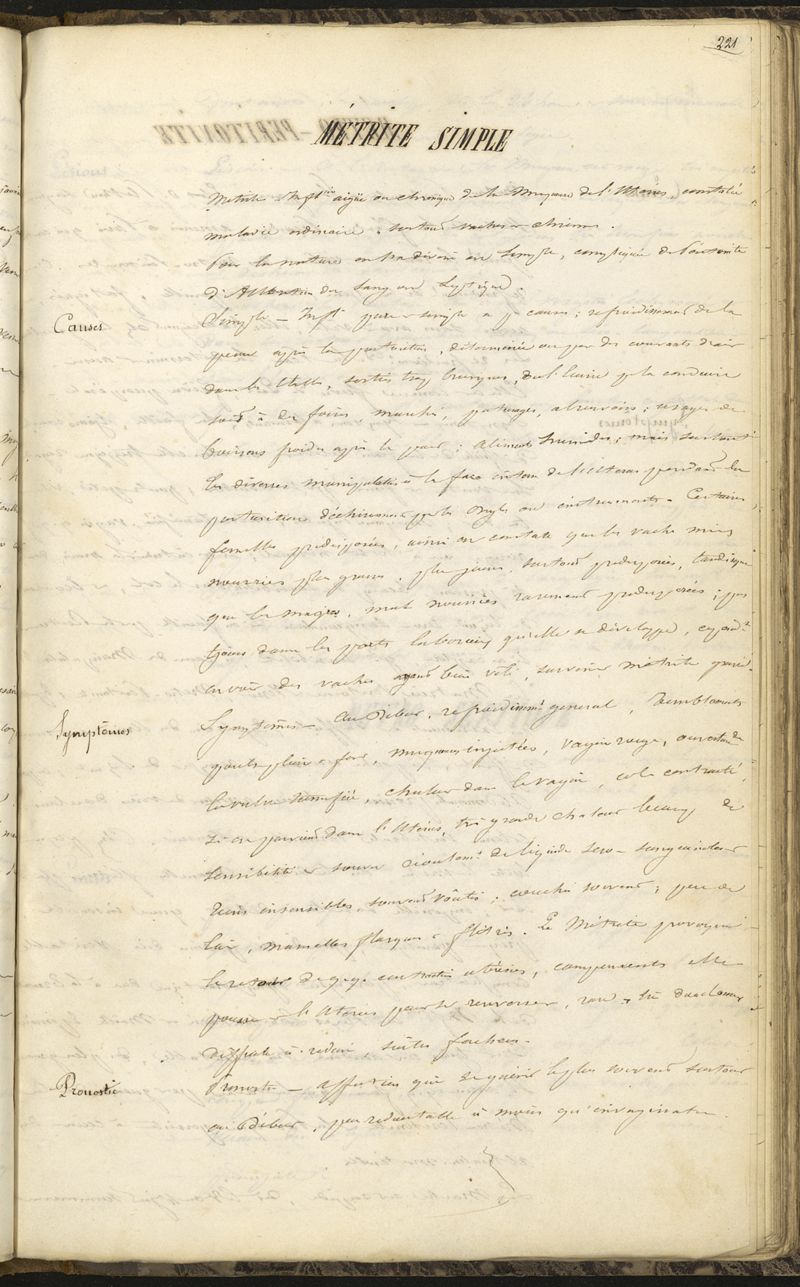 221
MÉTRITE SIMPLE
Métrite Inft.on aigüe ou chronique de la Muqueuse de l'Utérus, constitue
maladie ordinaire, surtout vaches et chiennes.
Pour la nature on la divise en Simple, compliquée de Péritonite
d'Altération du Sang ou Septique.
Causes
Simple — Inft. pure et simple a pr causes : refroidissement de la
peau après la parturition, déterminée ou par des courants d'air
dans les étables, sorties trop brusques, de l'écurie pr la conduire
soit à des foires, marchés, paturages, abreuvoirs ; usage de
boissons froides après le part ; aliments humides ; mais surtout
les diverses manipulations à la face interne de l'Utérus pendant la
parturition déchirement par les ongles ou instruments. Certaines
femelles prédisposées, ainsi on constate que les vaches mieux
nourries plus grasses, plus jeunes, surtout prédisposées, tandis que
que les maigres, mal nourries rarement prédisposées ;
dans les parts laborieux qu'elle se développe, cependt
on voit des vaches ayant bien vêlé, survenir métrite
Symptômes
Symptômes — Au Début, refroidissmt général, tremblements
pouls plein et fort, muqueuses injectées, vagin rouge,
la vulve tuméfiée, chaleur dans le vagin, col contracté,
si on parvient dans l'Utérus, très grande chaleur beaucoup de
sensibilité et souvt écoulemt de liquide sero-sanguinolent
Reins insensibles, souvent voûtés, couchés souvent ; peu de
lait, mamelles flasques et flétries. La Métrite provoque
le retour de qq. contractions utérines,
pousse et l'Utérus peut se renverser, rare et très douloureux
difficile à réduire, suites fâcheuses.
Pronostic
Pronostic — affection qui se guérit le plus souvent surtout
au Début, peu redoutable à moins qu'